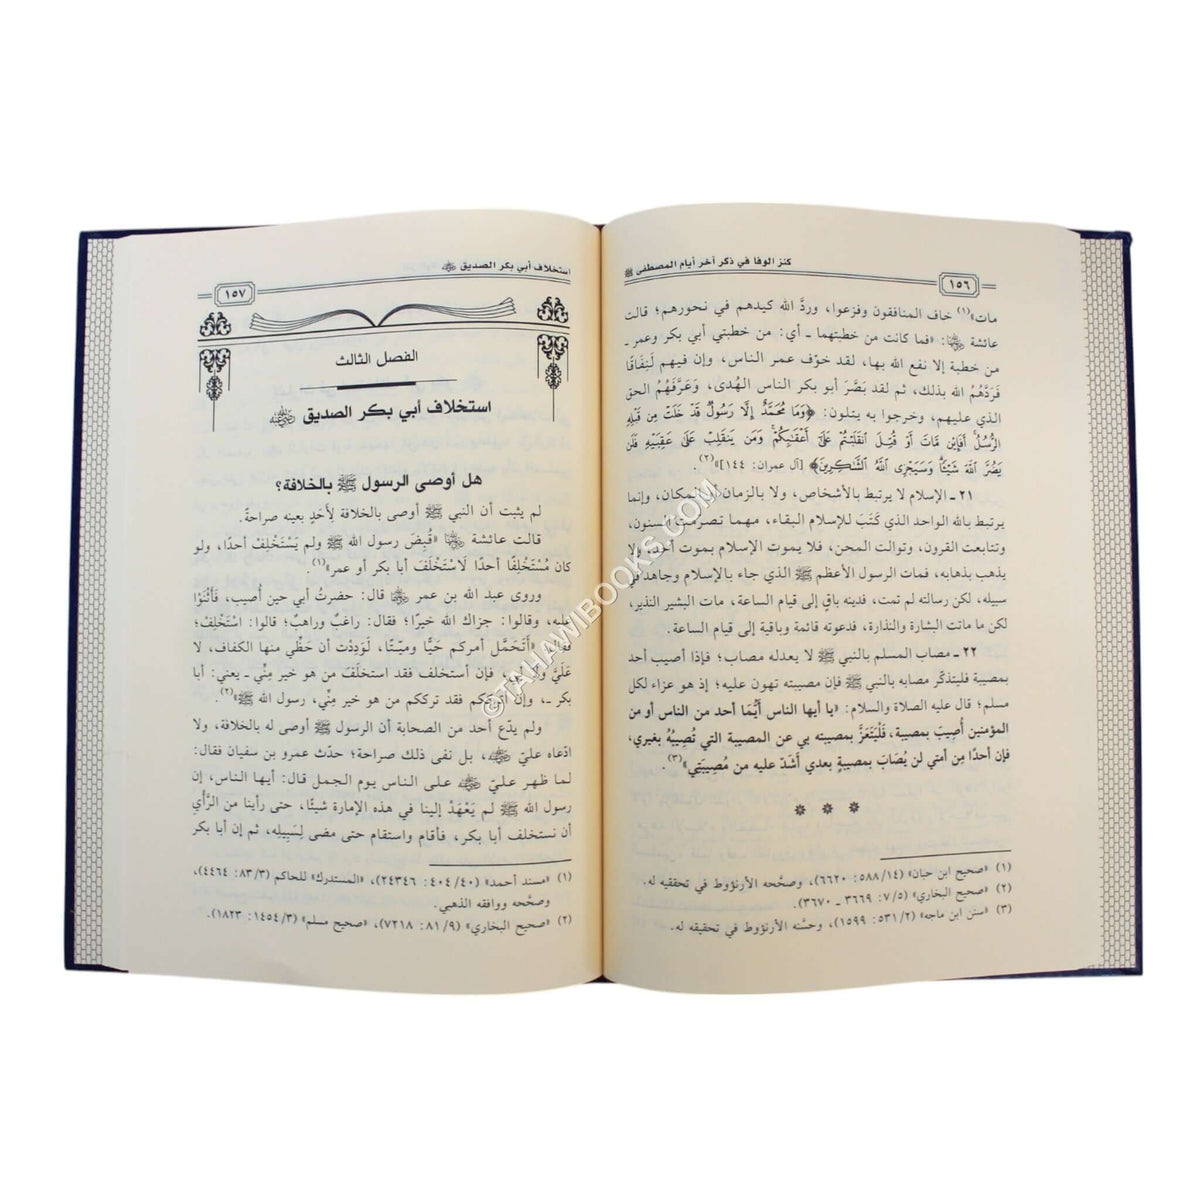 كنز الوفا في ذكر آخر أيام المصطفى ﷺ
١٥٦
مات»(١) خاف المنافقون وفزعوا، وردَّ الله كيدهم في نحورهم؛ قالت
عائشة رضي الله عنها: «فما كانت من خطبتهما ـ أي: من خطبتي أبي بكر وعمر ـ
من خطبة إلا نفع الله بها، لقد خوَّف عمر الناس، وإن فيهم لَنِفَاقًا
فَرَدَّهُمُ الله بذلك، ثم لقد بَصَّرَ أبو بكر الناس الهُدىٰ، وَعَرَّفَهُمُ الحق
الذي عليهم، وخرجوا به يتلون: ﴿وَمَا مُحَمَّدٌ إِلَّا رَسُولٌ قَدْ خَلَتْ مِن قَبْلِهِ
الرُّسُلُ أَفَإِيْن مَّاتَ أَوْ قُتِلَ انقَلَبْتُمْ عَلَىٰ أَعْقَابِكُمْ وَمَن يَنقَلِبْ عَلَىٰ عَقِبَيْهِ فَلَن
يَضُرَّ اللَّهَ شَيْئًا وَسَيَجْزِى اللَّهُ الشَّاكِرِينَ﴾ [آل عمران: ١٤٤]»(٢).
٢١ ـ الإسلام لا يرتبط بالأشخاص، ولا بالزمان أو المكان، وإنما
يرتبط بالله الواحد الذي كَتَبَ للإسلام البقاء، مهما تصرمت السنون،
وتتابعت القرون، وتوالت المحن، فلا يموت الإسلام بموت أحد، ولا
يذهب بذهابه، فمات الرسول الأعظم ﷺ الذي جاء بالإسلام وجاهد في
سبيله، لكن رسالته لم تمت، فدينه باقٍ إلى قيام الساعة، مات البشير النذير،
لكن ما ماتت البشارة والنذارة، فدعوته قائمة وباقية إلى قيام الساعة.
٢٢ ـ مصاب المسلم بالنبي ﷺ لا يعدله مصاب؛ فإذا أصيب أحد
بمصيبة فليتذكّر مصابه بالنبي ﷺ فإن مصيبته تهون عليه؛ إذ هو عزاء لكل
مسلم؛ قال عليه الصلاة والسلام: «يا أيها الناس أيُّمَا أحد من الناس أو من
المؤمنين أُصِيبَ بمصيبة، فَلْيَتَعَزَّ بمصيبته بي عن المصيبة التي تُصِيبُهُ بغيري،
فإن أحدًا مِن أمتي لن يُصَابَ بمصيبةٍ بعدي أشَدّ عليه من مُصِيبَتِي»(٣).
(١) «صحيح ابن حبان» (١٤/ ٥٨٨: ٦٦٢٠)، وصحَّحه الأرنؤوط في تحقيقه له.
(٢) «صحيح البخاري» (٥/ ٧: ٣٦٦٩ ـ ٣٦٧٠).
(٣) «سنن ابن ماجه» (٢/ ٥٣١: ١٥٩٩)، وحسَّنه الأرنؤوط في تحقيقه له.
استخلاف أبي بكر الصديق رضي الله عنه
١٥٧
الفصل الثالث
استخلاف أبي بكر الصديق رضي الله عنه
هل أوصى الرسول ﷺ بالخلافة؟
لم يثبت أن النبي ﷺ أوصى بالخلافة لأَحَدٍ بعينه صراحةً.
قالت عائشة رضي الله عنها «قُبِضَ رسول الله ﷺ ولم يَسْتَخْلِفْ أحدًا، ولو
كان مُسْتَخْلِفًا أحدًا لَاسْتَخْلَفَ أبا بكر أو عمر»(١)
وروى عبد الله بن عمر رضي الله عنهما قال: حضرتُ أبي حين أُصيب، فَأَثْنَوْا
عليه، وقالوا: جزاك الله خيرًا؛ فقال: راغبٌ وراهبٌ؛ قالوا: اسْتَخْلِفْ؛
فقال: «أَتَحَمَّل أمركم حَيًّا وميّتًا، لَوَدِدْت أن حَظِّي منها الكفاف، لا
عَلَيَّ ولا لي، فإن أستخلف فقد استخلَفَ من هو خير مِنِّي ـ يعني: أبا
بكر ـ، وإن أترككم فقد ترككم من هو خير مِنِّي، رسول الله ﷺ»(٢).
ولم يدّع أحد من الصحابة أن الرسول ﷺ أوصى له بالخلافة، ولا
ادّعاه عليّ رضي الله عنه، بل نفى ذلك صراحة؛ حدّث عمرو بن سفيان فقال:
لما ظهر عليّ رضي الله عنه على الناس يوم الجمل قال: أيها الناس، إن
رسول الله ﷺ لم يَعْهَدْ إلينا في هذه الإمارة شيئًا، حتى رأينا من الرَّأيِ
أن نستخلف أبا بكر، فأقام واستقام حتى مضى لِسَبِيلِه، ثم إن أبا بكر
(١) «مسند أحمد» (٤٠/ ٤٠٤: ٢٤٣٤٦)، «المستدرك» للحاكم (٣/ ٨٣: ٤٤٦٤)،
وصحَّحه ووافقه الذهبي.
(٢) «صحيح البخاري» (٩/ ٨١: ٧٢١٨)، «صحيح مسلم» (٣/ ١٤٥٤: ١٨٢٣).
©TAHAWIBOOKS.COM